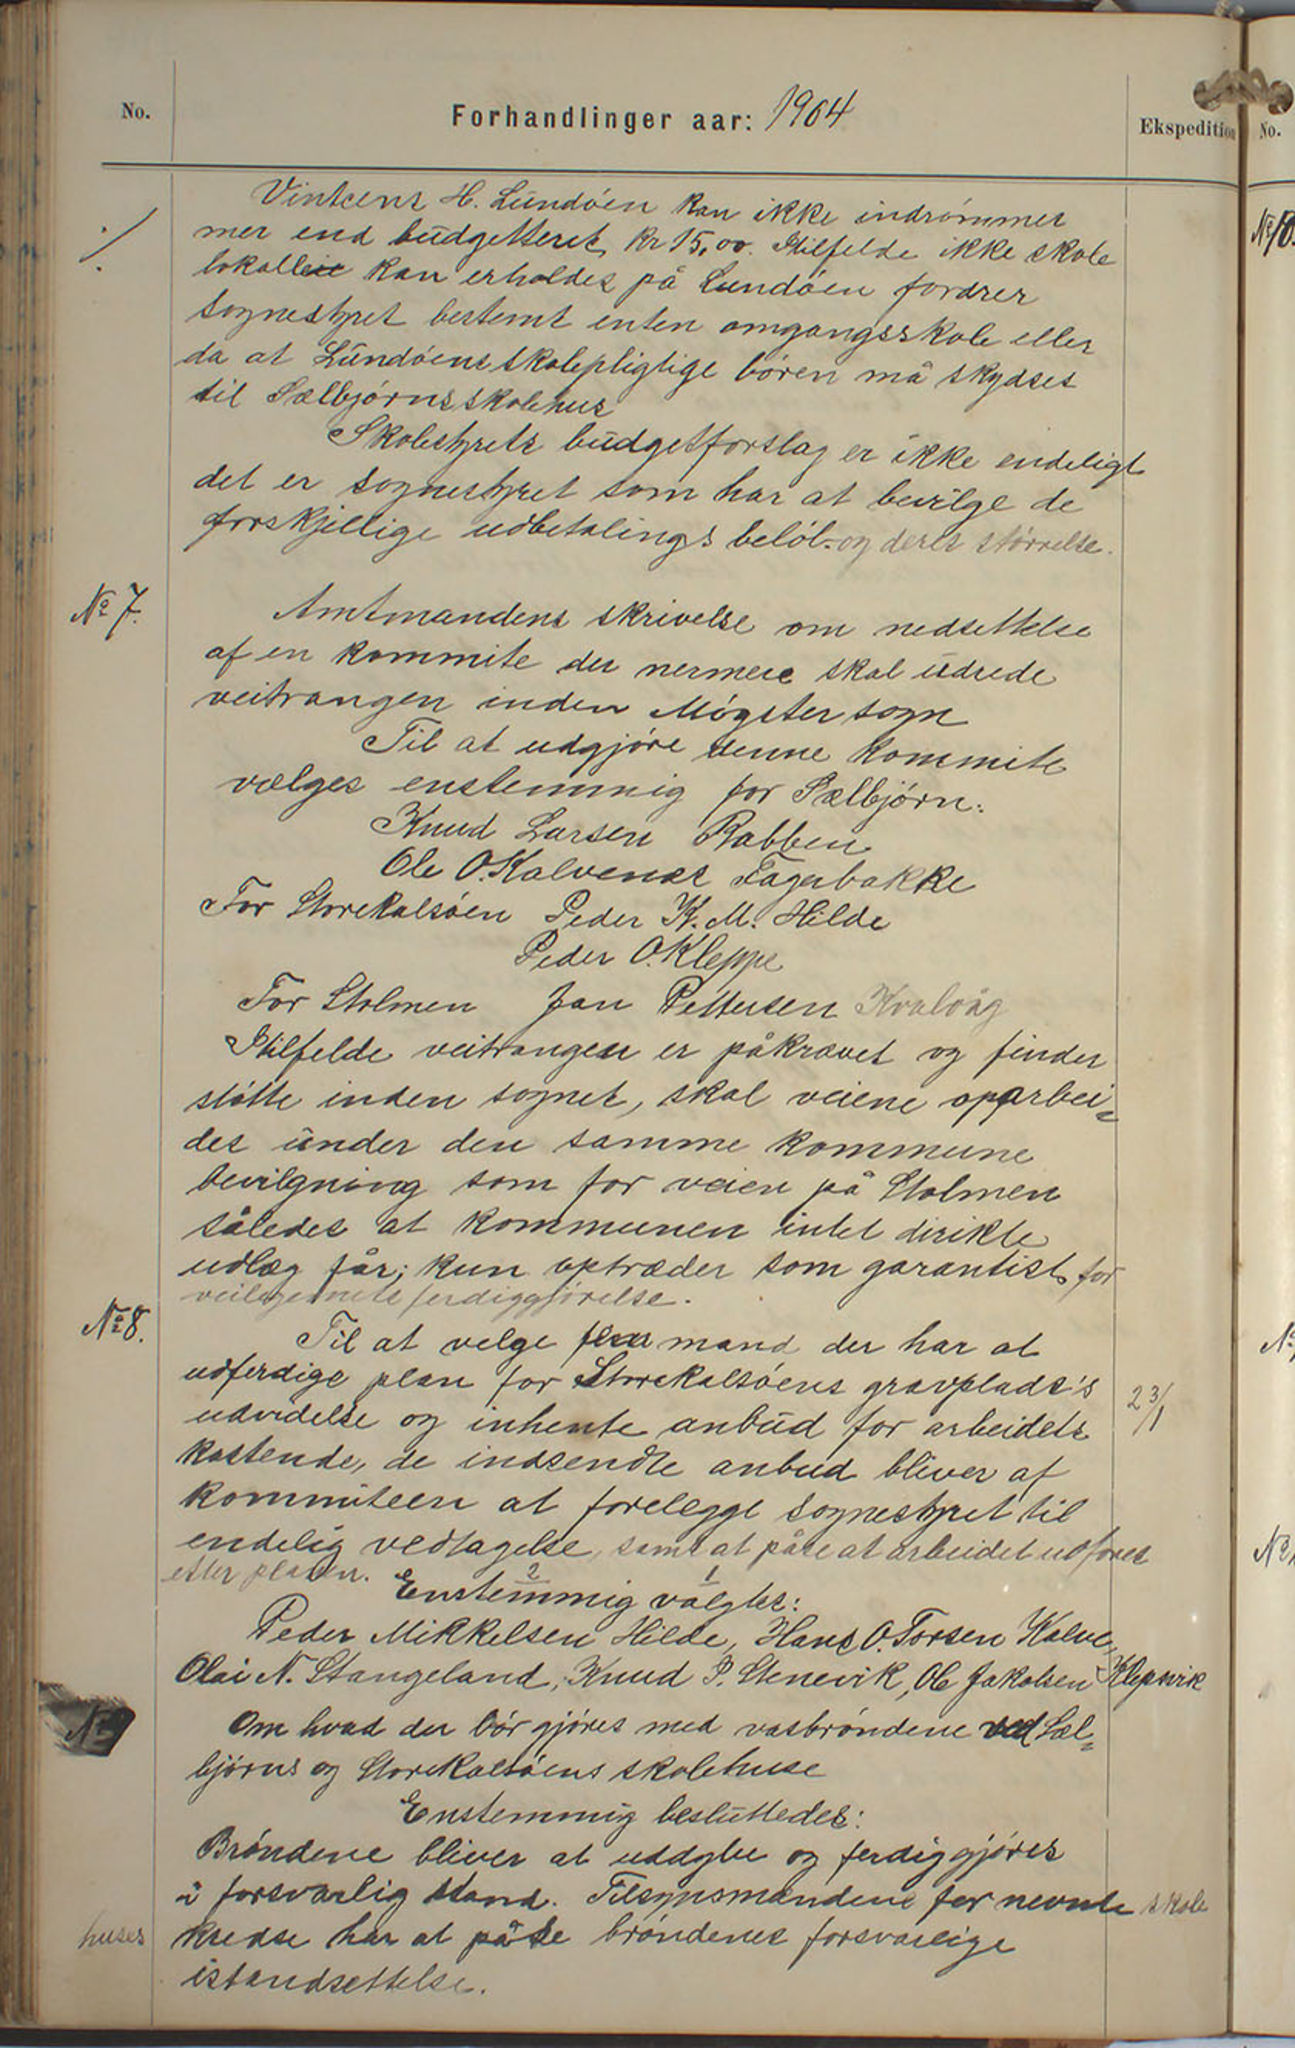 No.
Forhandlinger aar: 1904
Ekspedition
No.
Vintcens H. Lundöen kan ikke indrömmes
mer end budgetteret, kr 15,00. Itilfelde ikke skole
lokalleie kan erholdes på Lundöen fordrer
sognestyret bestemt enten omgangsskole eller
da at Lundöens skolepligtige bören må skydses
til Sælbjörns skolehus
Skolestyrets budgetforslag er ikke endeligt
det er sognestyret som har at bevilge de
forskjellige udbetalings belöb og deres störrelse.
No 7.
Amtmandens skrivelse om nedsettelse
af en kommite der nermere skal udrede
veitrangen inden Mögster sogn
Til at udgjöre denne kommite
vælges enstemmig for Sælbjörn:
Knud Larsen Rabben
Ole O. Kalvenes Fagerbakke
For Storekalsöen Peder K. M. Hilde
Peder O. Kleppe
For Stolmen Jan Pettersen Kvalvåg
Itilfelde veitrangen er påkrævet og finder
stötte inden sognet, skal veiene oparbei-
des under den samme kommune
bevilgning som for veien på Stolmen
således at kommunen intet dirikte
udlæg får; kun optræder som garantist for
ferdiggjörelse.
No 8.
Til at velge mand der har at
udferdige plan for Storekalsöens gravplads's
udvidelse og inhente anbud for arbeidets
kostende, de indsendte anbud bliver af
kommiteen at forelegge sognestyret til
endelig vedtagelse, samt at påse at arbeidet udföres
etter planen.
23/1
Enstemmig valgtes:
2 1
Peder Mikkelsen Hilde, Hans O. Torsen Kalve,
Olai N. Stangeland, Knud P. Stenevik, Ole Jakobsen Klepsvik
No
Om hvad der bör gjöres med vasbröndene ved Sæl-
björns og Storekalsöens skolehuse
Enstemmig besluttedes:
Bröndene bliver at uddybe og ferdiggjöres
i forsvarlig stand. Tilsynsmændene for nevnte skole
huses kredse har at påse bröndenes forsvarlige
istandsettelse.